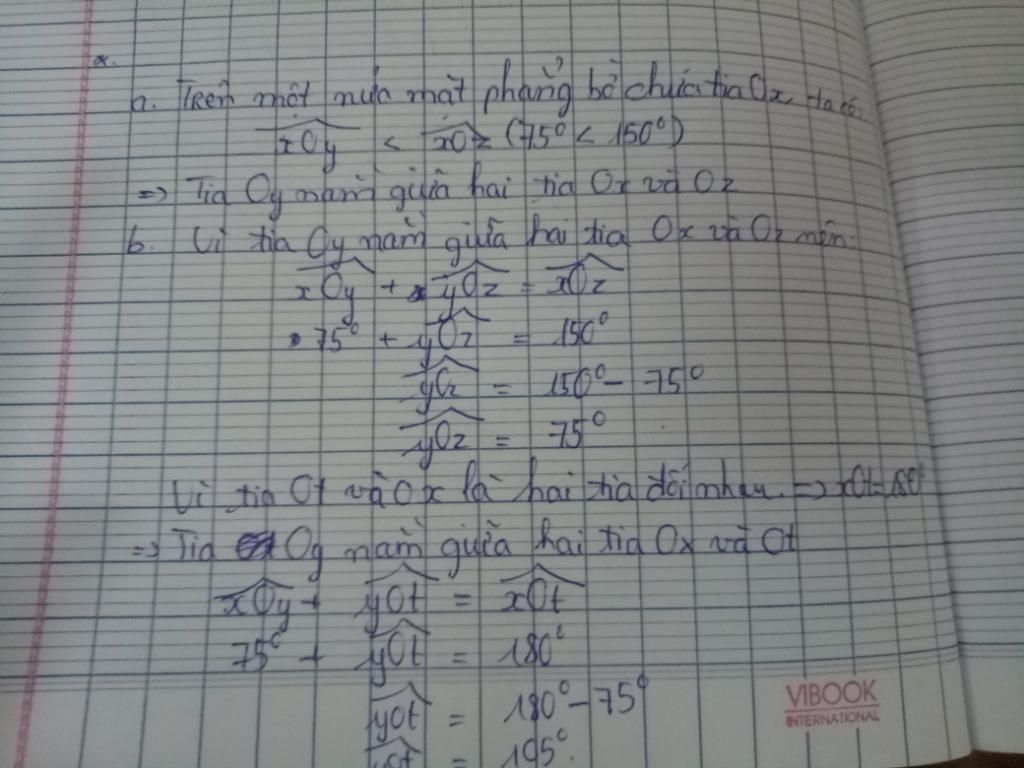 a. Trên một nửa mặt phẳng bờ chứa tia Ox ta có:
xOy < xOz (75° < 150°)
=> Tia Oy nằm giữa hai tia Ox và Oz
b. Vì tia Oy nằm giữa hai tia Ox và Oz nên:
xOy + yOz = xOz
75° + yOz = 150°
yOz = 150° - 75°
yOz = 75°
Vì tia Ot và Ox là hai tia đối nhau => xOt = 180°
=> Tia Oy nằm giữa hai tia Ox và Ot
xOy + yOt = xOt
75° + yOt = 180°
yOt = 180° - 75°
yOt = 105°
VIBOOK
INTERNATIONAL